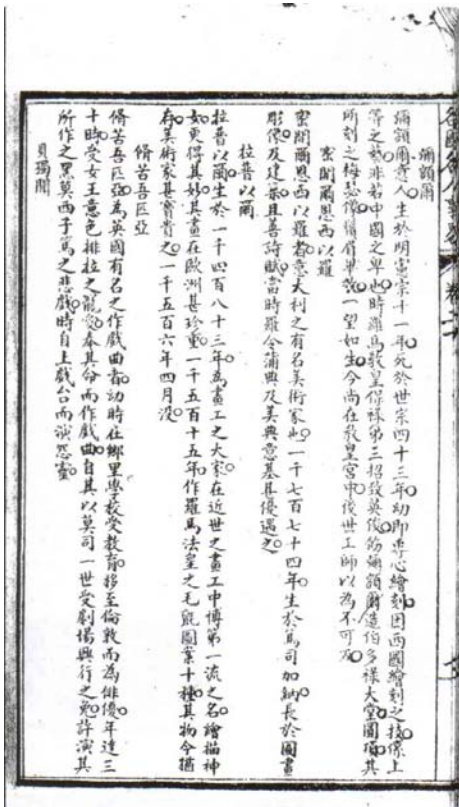 各國名人事略 卷二十
彌額爾
彌額爾意人生於明憲宗十一年死於世宗四十三年幼即專心繪刻因西國繪刻之技係上
等之藝非若中國之卑也時羅馬教皇保祿第三招致英俊飭彌額爾造伯多祿大堂圓頂其
所刻之梅瑟像鬚眉畢效一望如生今尚在教皇宮中後世工師以為不可及
密開爾恩西以羅
密開爾恩西以羅者意大利之有名美術家也一千七百七十四年生於篤司加納長於圖畫
彫像及建築且善詩賦當時羅令蒲典及美典意基甚優遇之
拉普以爾
拉普以爾生於一千四百八十三年為畫工之大家在近世之畫工中博第一流之名繪描神
女更得其妙其畫在歐洲甚珍重一千五百十五年作羅馬法皇之毛氈圖案十種其物今猶
存美術家甚寶貴之一千五百六年四月沒
脩苦吾匹亞
脩苦吾匹亞為英國有名之作戲曲者幼時在鄉里學校受教育移至倫敦而為俳優年達三
十時受女王意色排拉之寵愛奉其命而作戲曲自其以莫司一世受劇場興行之免許演其
所作之黑莫西子篤之悲戲時自上戲台而演怨靈
貝獨聞